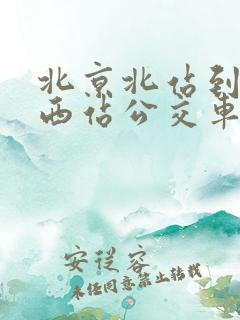 北京北站到
西站公交车
安从容
未经同意禁止转载